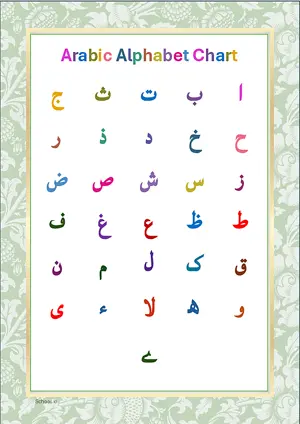 Arabic Alphabet Chart
ا ب ت ث ج
ح خ د ذ ر
ز س ش ص ض
ط ظ ع غ ف
ق ک ل م ن
و ھ لا ء ی
ے